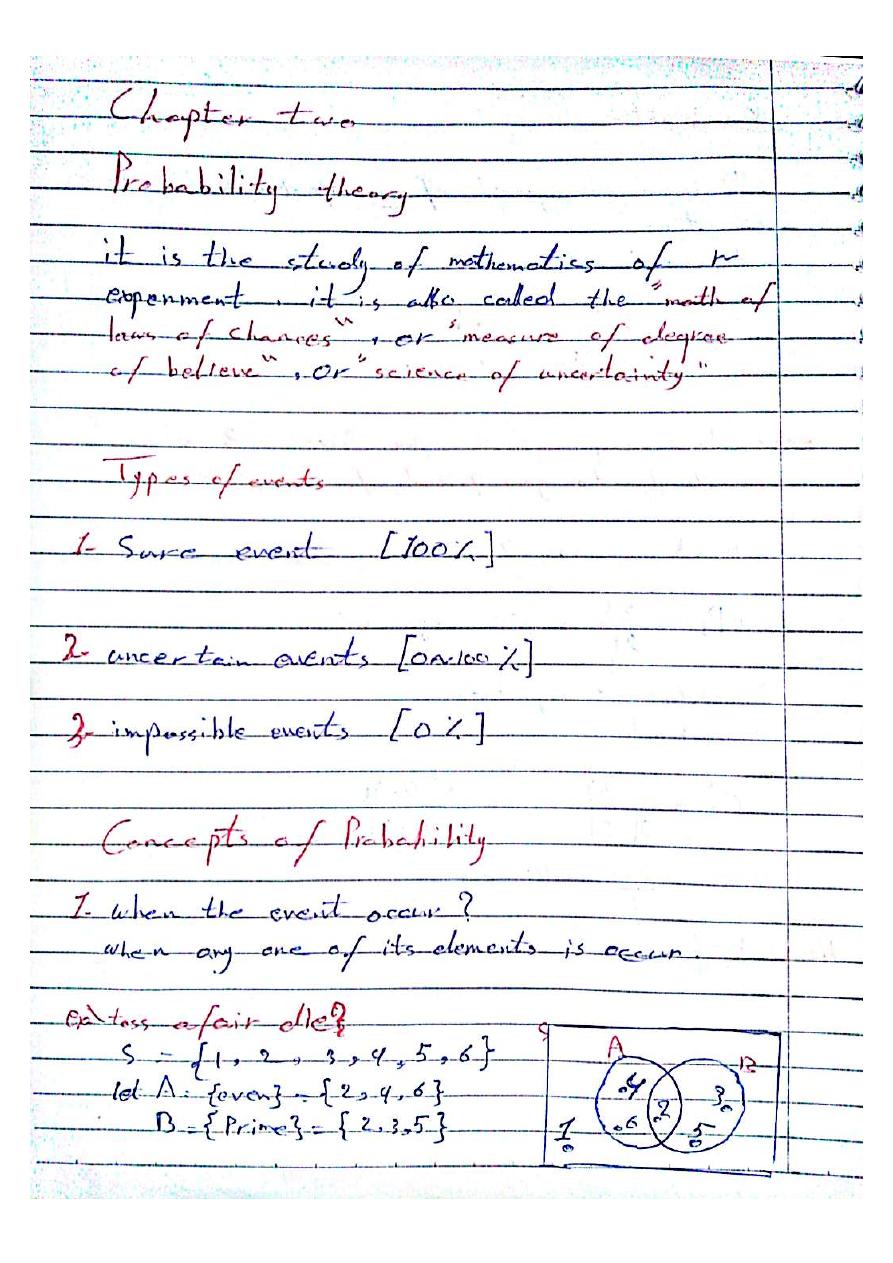 Chapter two
Probability theory
it is the study of mathematics of r
experiment. it is also called the "math of
laws of chances", or "measure of degree
of believe", or "science of uncertainty"
Types of events
1- Sure event [100%]
2- uncertain events [0~100%]
3- impossible events [0%]
Concepts of Probability
1- when the event occur?
when any one of its elements is occur.
ex\ toss a fair die?
S = {1, 2, 3, 4, 5, 6}
let A = {even} = {2, 4, 6}
B = {Prime} = {2, 3, 5}
S
A
B
.4
3.
.2
.6
5
1